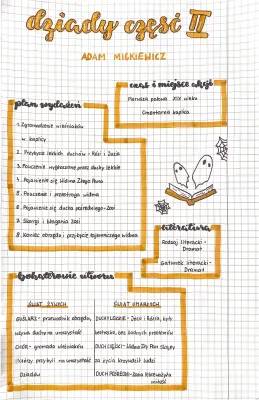 dziady część II
ADAM MICKIEWICZ
czas i miejsce akcji
Pierwsza połowa XIX wieku
Cmentarna kaplica
plan wydarzeń
1. Zgromadzenie wieśniaków
w kaplicy
2. Przybycie lekkich duchów - Rózi i Józia
3. Pouczenie wygłaszane przez duchy lekkie
4. Pojawienie się Widma Złego Pana
5. Pouczenie i przestroga widma
6. Pojawienie się ducha pośredniego - Zosi
7. Skargi i błagania Zosi
8. Koniec obrzędu i przybycie tajemniczego widma
literatura
Rodzaj literacki -
Dramat
Gatunek literacki -
Dramat
bohaterowie utworu
ŚWIAT ŻYWYCH
ŚWIAT UMARŁYCH
GUŚLARZ - przewodnik obrzędu,
wzywa duchy na uroczystość
CHÓR - gromada wieśniaków
którzy przybyli na uroczystość
Dziadów
DUCHY LEKKIE - Józio i Rózia, byli
beztroscy, bez żadnych problemów
DUCH CIĘŻKI - Widmo Zły Pan
za życia krzywdził ludzi
DUCH POŚREDNI - Zosia
miłość